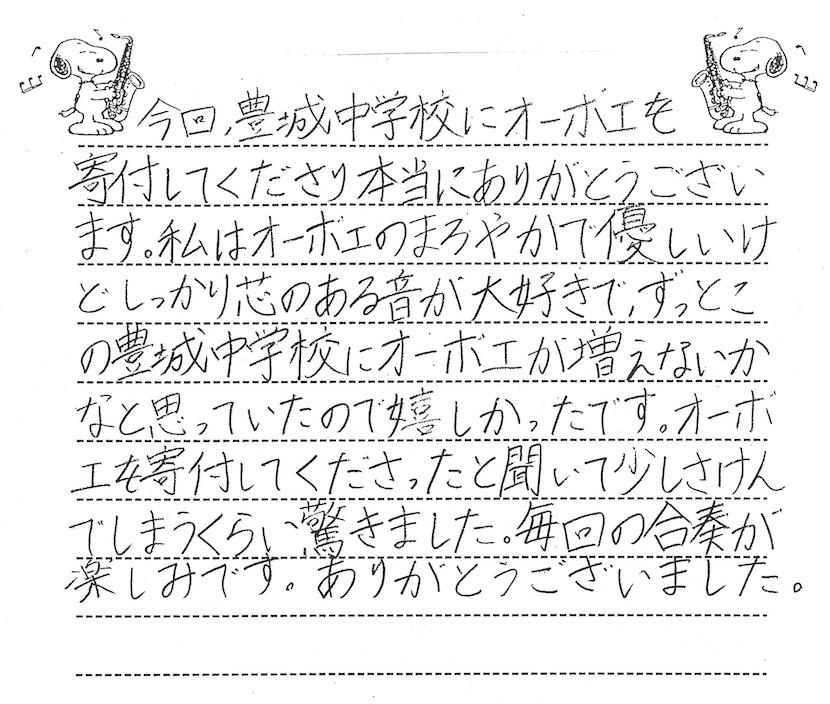 今回、豊城中学校にオーボエを
寄付してくださり本当にありがとうござい
ます。私はオーボエのまろやかで優しいけ
どしっかり芯のある音が大好きで、ずっとこ
の豊城中学校にオーボエが増えないか
なと思っていたので嬉しかったです。オーボ
エを寄付してくださったと聞いて少しさけん
でしまうくらい驚きました。毎回の合奏が
楽しみです。ありがとうございました。